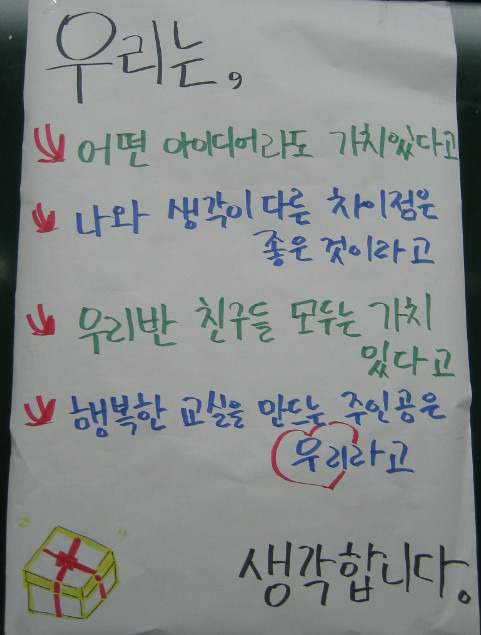 우리는,
어떤 아이디어라도 가치있다고
나와 생각이 다른 차이점은
좋은 것이라고
우리반 친구들 모두는 가치
있다고
행복한 교실을 만드는 주인공은
우리라고
생각합니다.